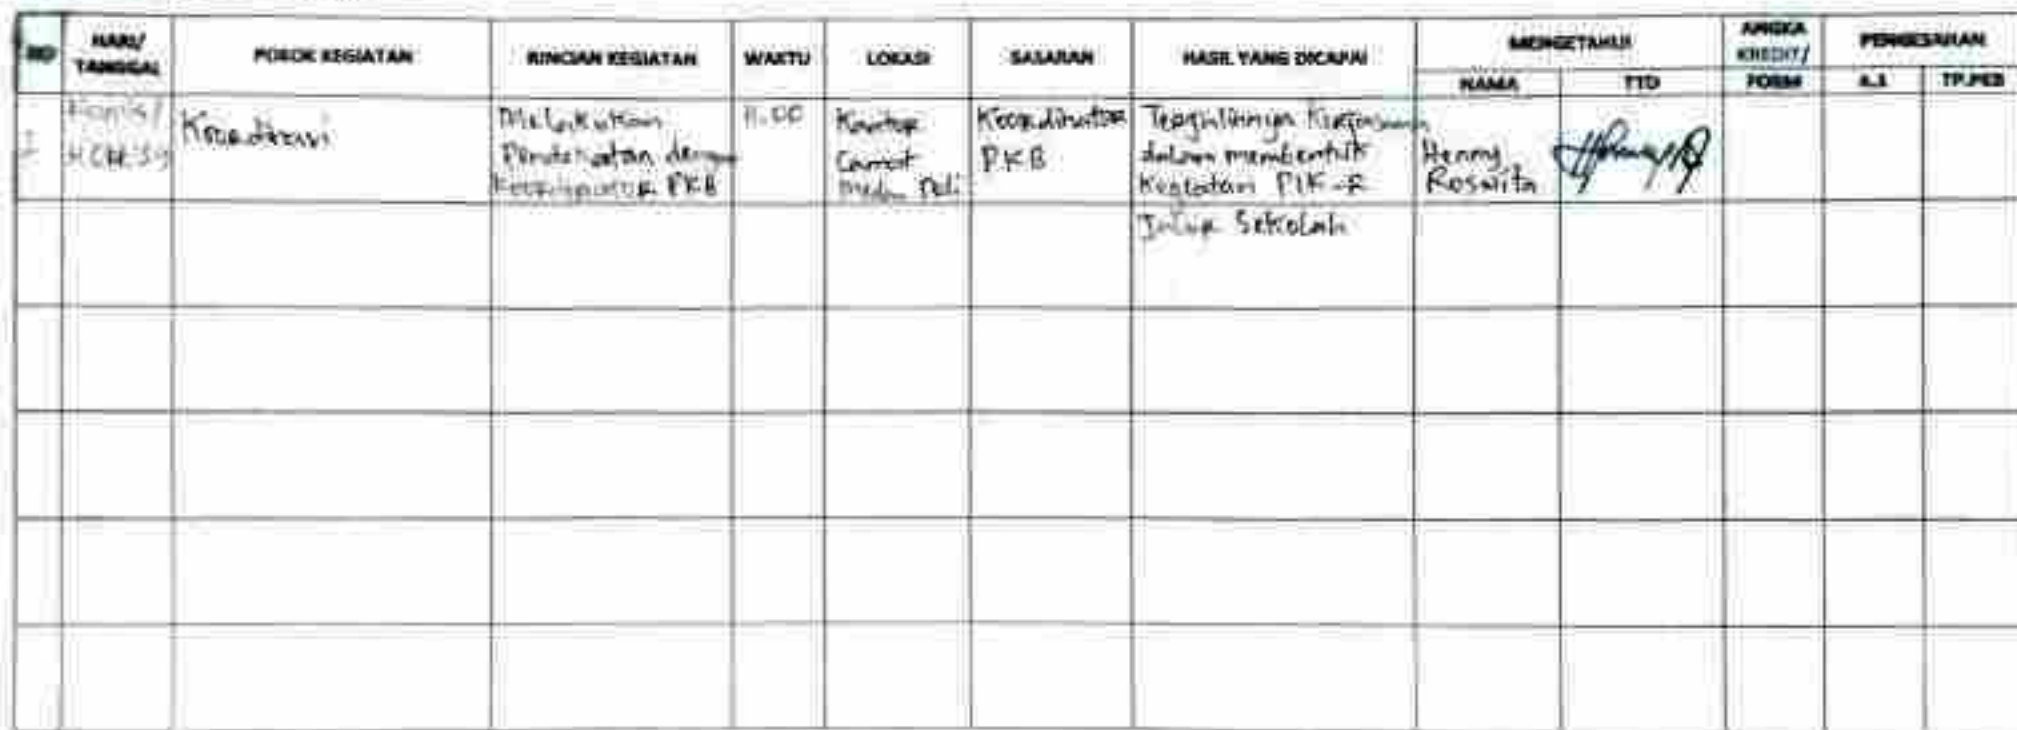 NO
HARI/
TANGGAL
POKOK KEGIATAN
RINCIAN KEGIATAN
WAKTU
LOKASI
SASARAN
HASIL YANG DICAPAI
MENGETAHUI
NAMA
TTD
ANGKA
KREDIT/
FORM
PENGESAHAN
A.1
Kamis/
Koordinasi
Melakukan
Pendekatan dengan
Koordinator PKB
11.00
Kantor
Camat
Medan Deli
Koordinator
PKB
Terjalinnya Kerjasama
dalam membentuk
Kegiatan PIK-R
Jalur Sekolah
Henny
Roswita